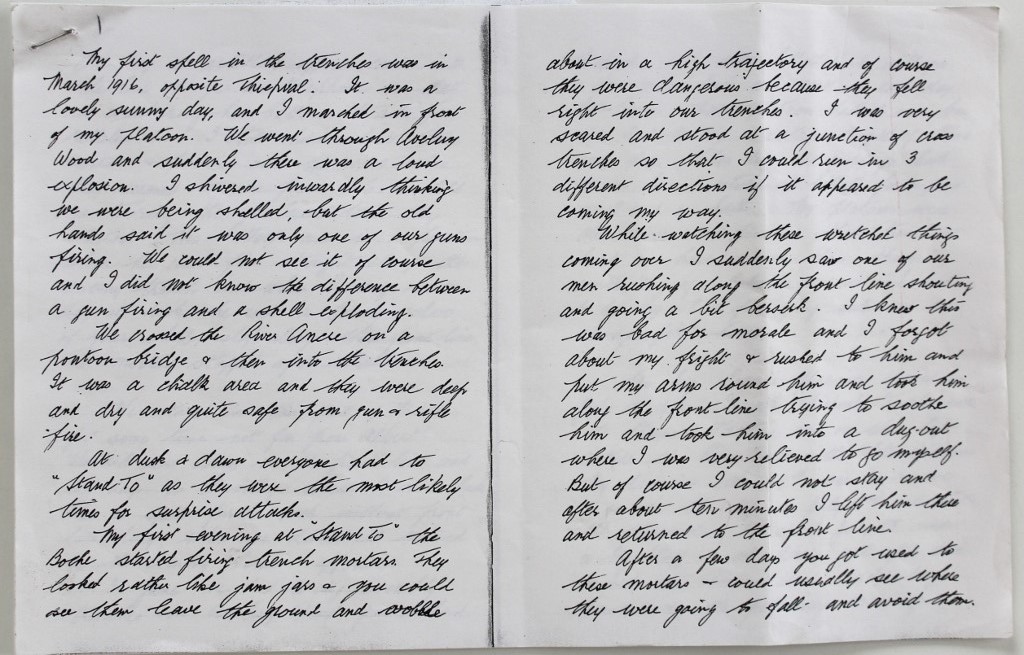 1
My first spell in the trenches was in
March 1916, opposite Thiepval. It was a
lovely sunny day, and I marched in front
of my platoon. We went through Aveluy
Wood and suddenly there was a loud
explosion. I shivered inwardly thinking
we were being shelled, but the old
hands said it was only one of our guns
firing. We could not see it of course
and I did not know the difference between
a gun firing and a shell exploding.
We crossed the River Ancre on a
pontoon bridge & then into the trenches.
It was a chalk area and they were deep
and dry and quite safe from gun & rifle
fire.
At dusk & dawn everyone had to
"Stand To" as they were the most likely
times for surprise attacks.
My first evening at "Stand To" the
Boche started firing trench mortars. They
looked rather like jam jars & you could
see them leave the ground and wobble
about in a high trajectory and of course
they were dangerous because they fell
right into our trenches. I was very
scared and stood at a junction of cross
trenches so that I could run in 3
different directions if it appeared to be
coming my way.
While watching these wretched things
coming over I suddenly saw one of our
men rushing along the front line shouting
and going a bit berserk. I knew this
was bad for morale and I forgot
about my fright & rushed to him and
put my arms round him and took him
along the front line trying to soothe
him and took him into a dug-out
where I was very relieved to go myself.
But of course I could not stay and
after about ten minutes I left him there
and returned to the front line.
After a few days you got used to
these mortars & could usually see where
they were going to fall and avoid them.